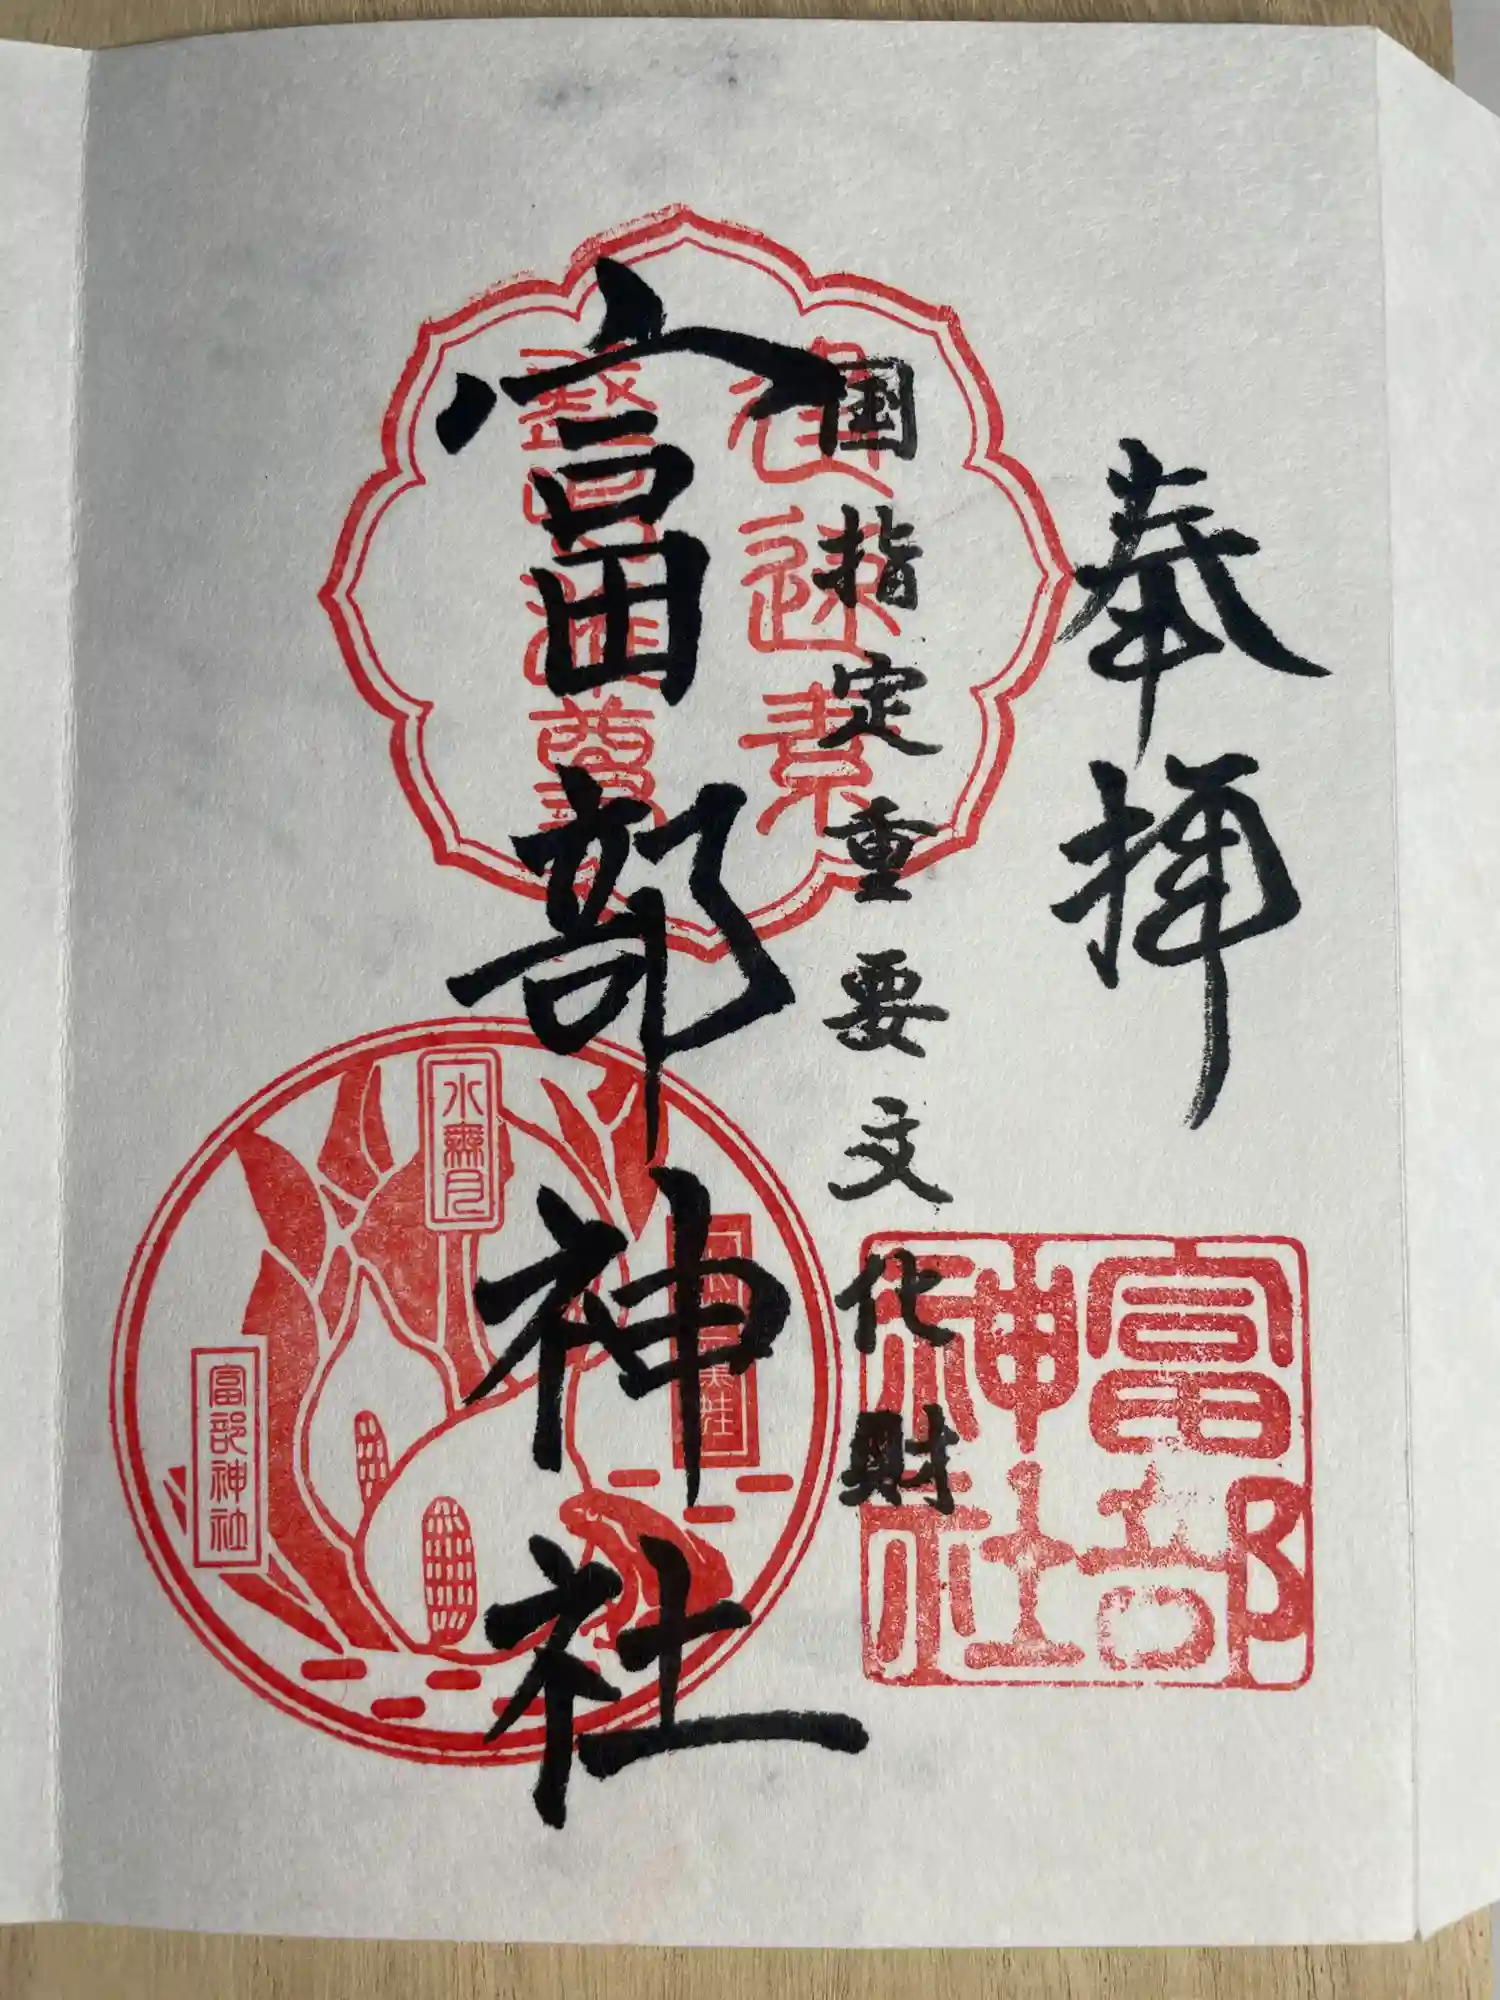 奉拝
国指定重要文化財
富部神社
建速素
盞嗚尊
富部
神社
水無月
富部神社